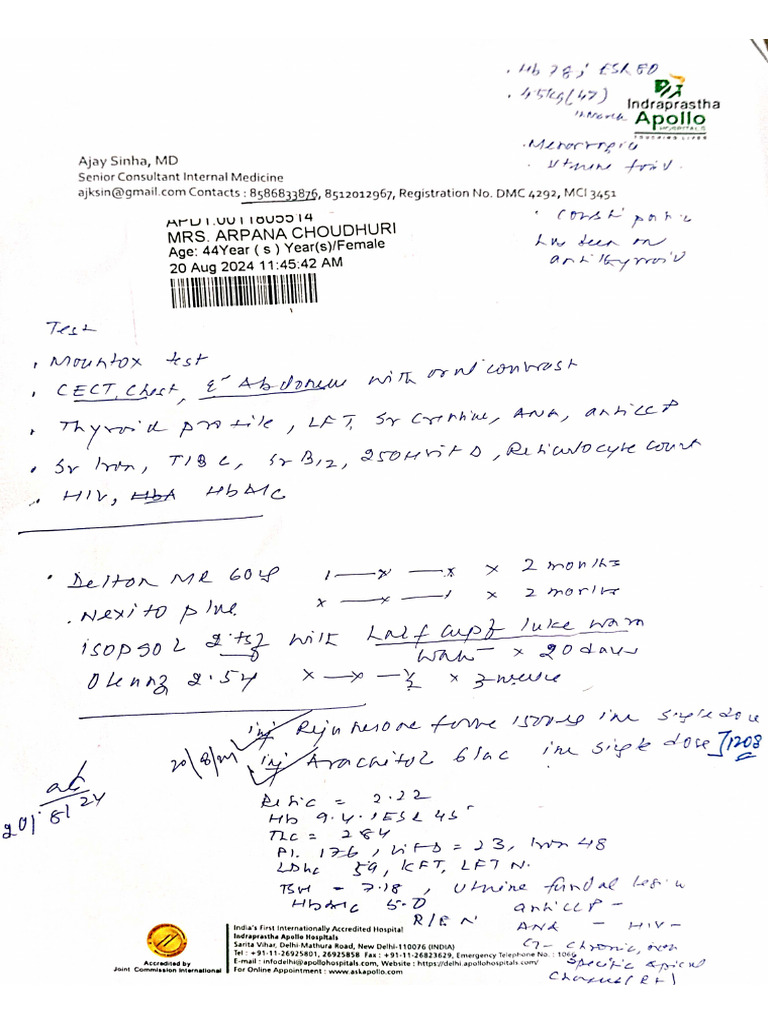 . Hb 78 ; ESR 80
. 45kg (47)
Indraprastha
Apollo
HOSPITALS
TOUCHING LIVES
Ajay Sinha, MD
Senior Consultant Internal Medicine
ajksin@gmail.com Contacts : 8586833876, 8512012967, Registration No. DMC 4292, MCI 3451
. Menorrogia
. Utrine
APD1.0011805514
MRS. ARPANA CHOUDHURI
Age: 44Year ( s ) Year(s)/Female
20 Aug 2024 11:45:42 AM
has been on
antithyroid
Test
. Mountox test
. CECT, Chest, & Abdomen with oral contrast
. Thyroid profile, LFT, Sr Cretnine, ANA, antiCCP
. Sr Iron, TIBC, Sr B12, 25OHvitD, Reticulocyte count
. HIV, HbA HbA1c
1 — x — x x 2 months
. Nexito plus x — — 1 x 2 months
2 tsf with half cup of luke warm
water x 20 days
Oleanz 2.5 x — x — 1/2 x 3 weeks
20/8/24
inj forte 1500 im single dose
inj Arachitol 6 lac im single dose] 1208
20/8/24
Retic = 2.22
Hb 9.4, ESR 45
TLC = 284
Pl. 176, VitD = 23, Iron 48
59, KFT, LFT N.
TSH = 7.18, Utrine fundal lesion
HbA1c 5.0 antiCCP -
R/E N ANA - HIV -
CT - Chronic, non
specific apical
changes (Rt)
Accredited by
Joint Commission International
India's First Internationally Accredited Hospital
Indraprastha Apollo Hospitals
Sarita Vihar, Delhi-Mathura Road, New Delhi-110076 (INDIA)
Tel : +91-11-26925801, 26925858 Fax : +91-11-26823629, Emergency Telephone No. : 1066
E-mail : infodelhi@apollohospitals.com, Website : https://delhi.apollohospitals.com/
For Online Appointment : www.askapollo.com